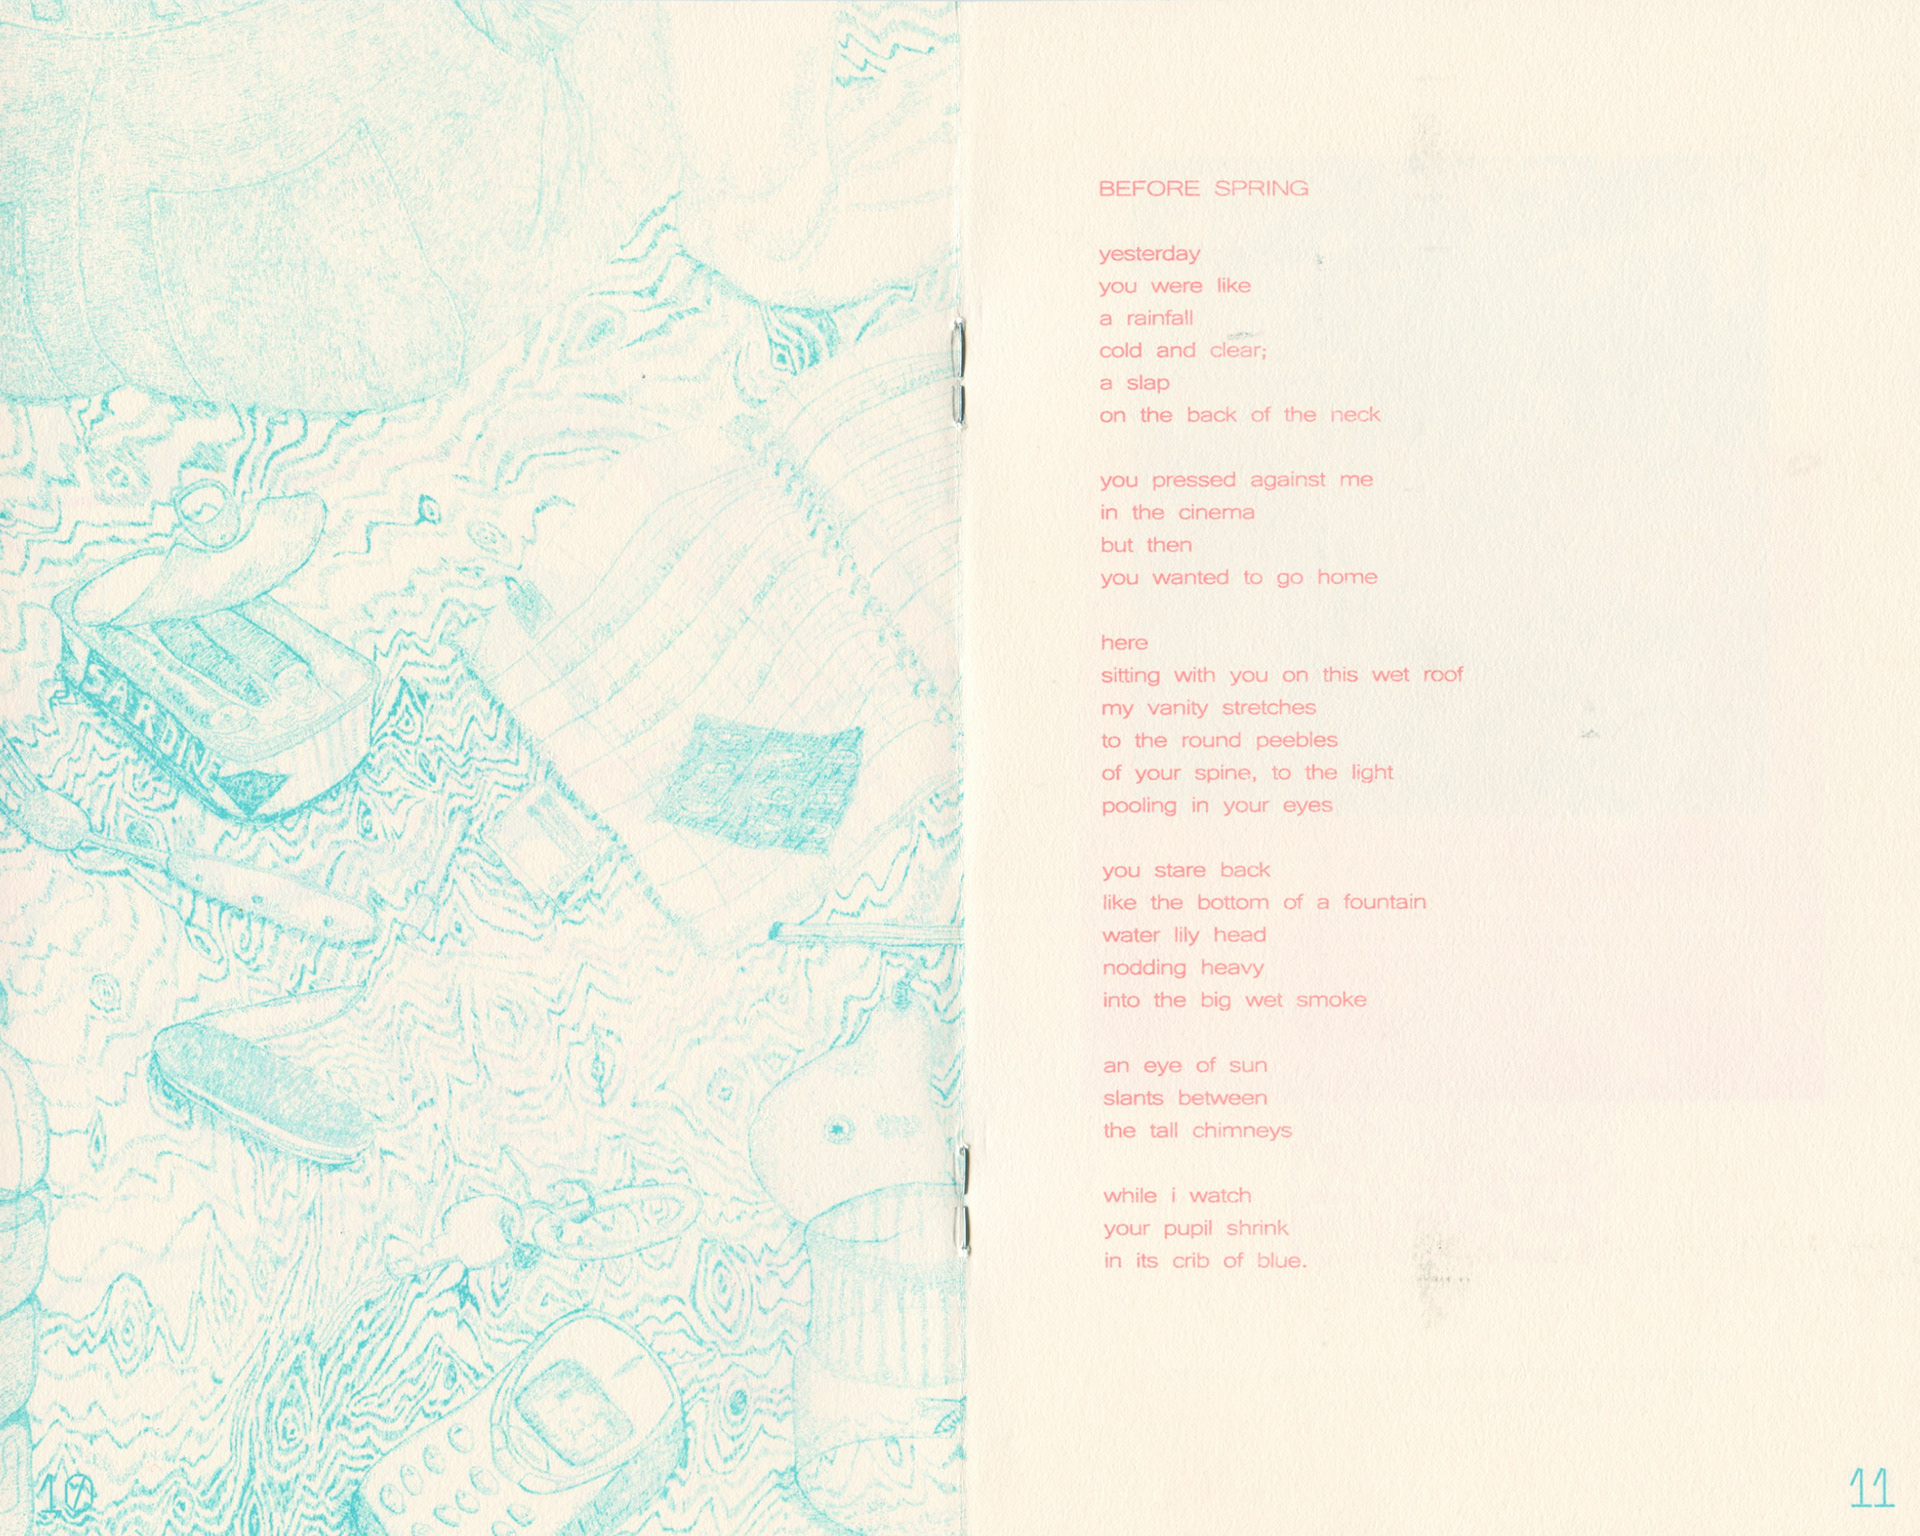 SARDINE
10
BEFORE SPRING
yesterday
you were like
a rainfall
cold and clear;
a slap
on the back of the neck
you pressed against me
in the cinema
but then
you wanted to go home
here
sitting with you on this wet roof
my vanity stretches
to the round peebles
of your spine, to the light
pooling in your eyes
you stare back
like the bottom of a fountain
water lily head
nodding heavy
into the big wet smoke
an eye of sun
slants between
the tall chimneys
while i watch
your pupil shrink
in its crib of blue.
11